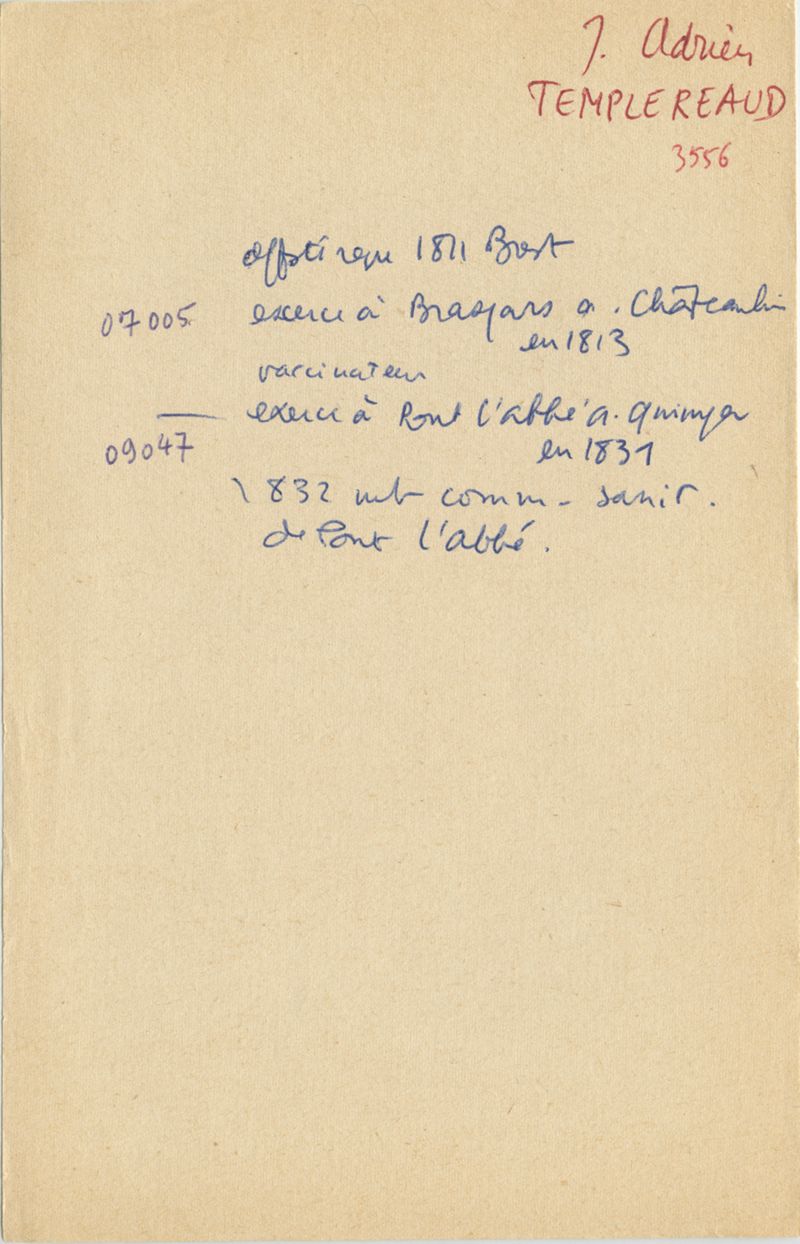 J. Adrien
TEMPLEREAUD
3556
reçu 1811 Brest
07005 exerce à Braspars a. Châteaulin
en 1813
vaccinateur
— exerce à Pont l'abbé a. Quimper
09047 en 1831
1832 mb comm. sanit.
de Pont l'abbé.